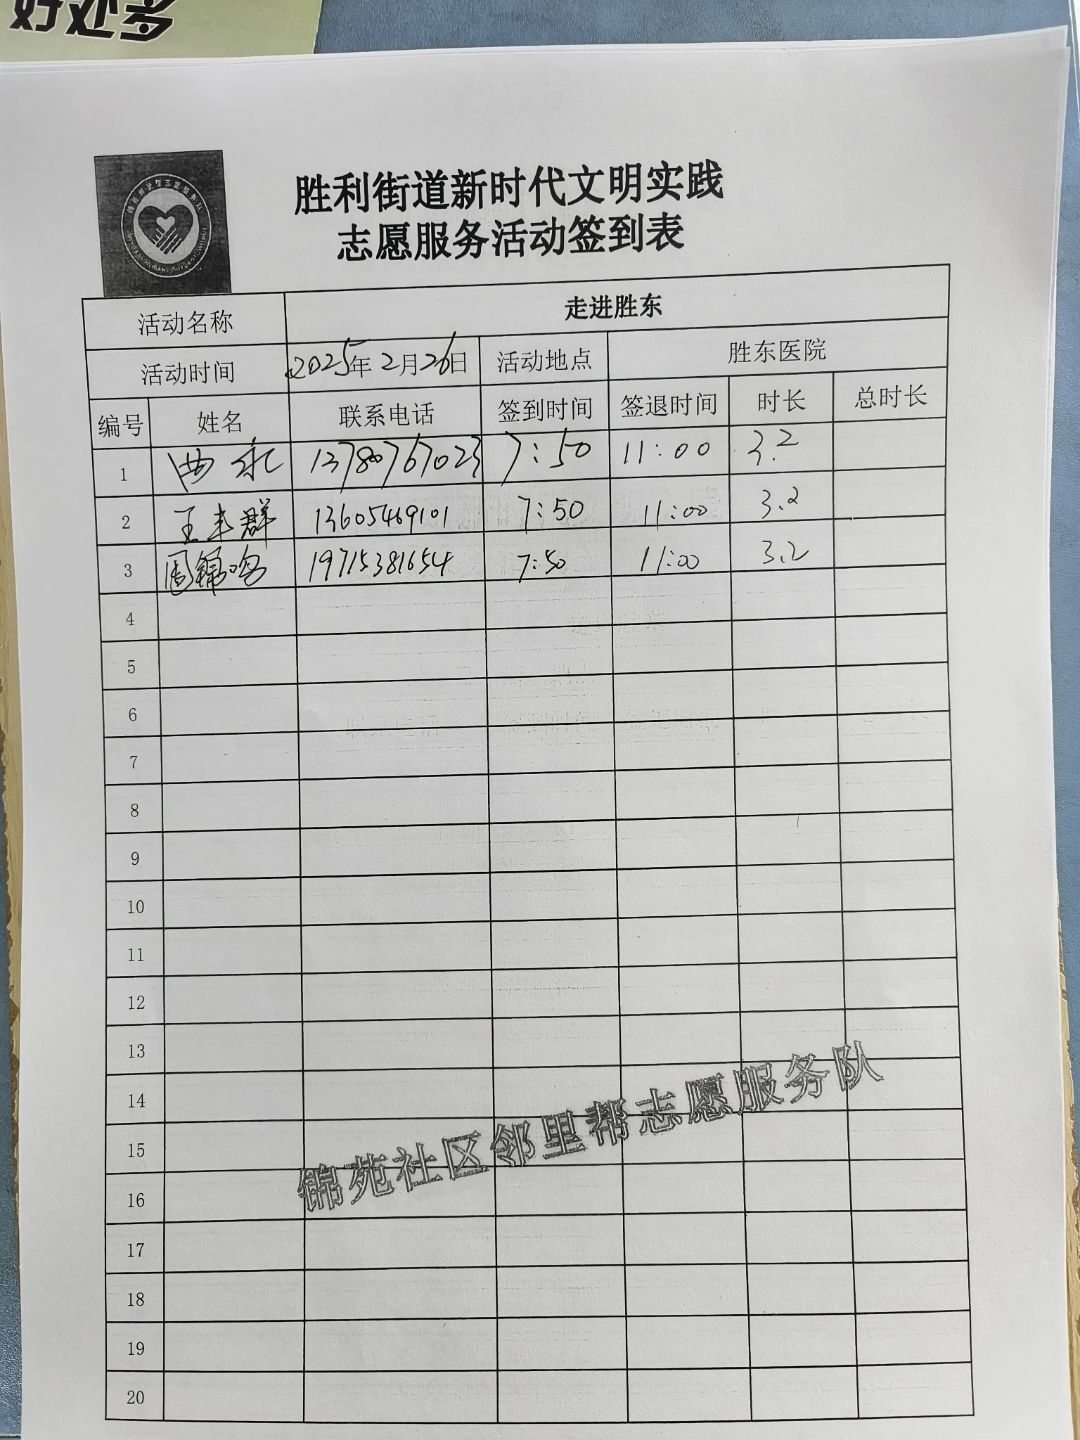 好处多
胜利街道新时代文明实践
志愿服务活动签到表
活动名称 走进胜东
活动时间 2025年2月26日 活动地点 胜东医院
编号 姓名 联系电话 签到时间 签退时间 时长 总时长
1 曲永 13780767023 7:50 11:00 3.2
2 王丰群 13605469101 7:50 11:00 3.2
3 周锦 19715381654 7:50 11:00 3.2
4
5
6
7
8
9
10
11
12
13
14
15
16
17
18
19
20
锦苑社区邻里帮志愿服务队